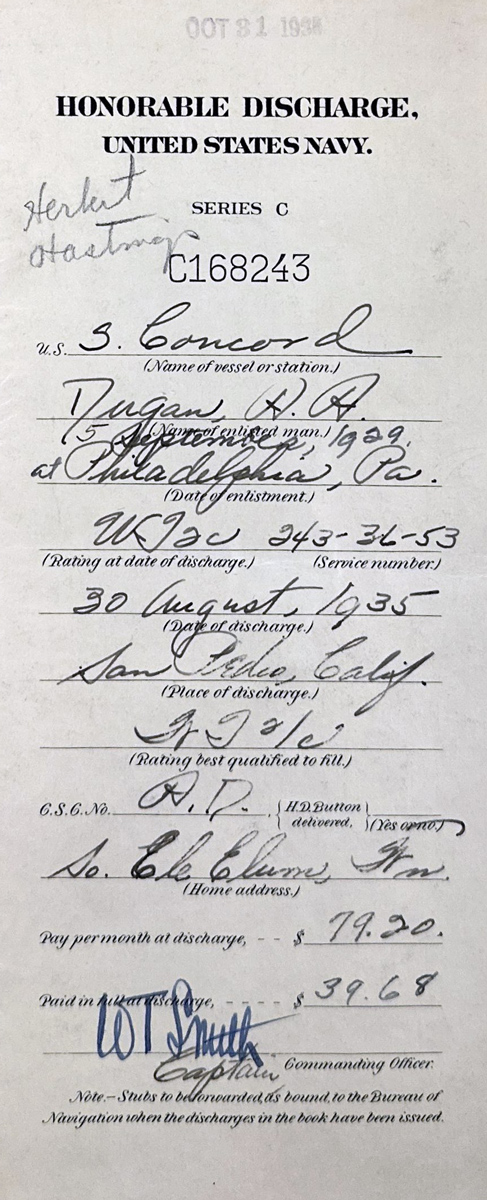 OCT 31 193
HONORABLE DISCHARGE,
UNITED STATES NAVY.
Herbert
Hastings
SERIES C
C168243
U.S. S. Concord
(Name of vessel or station.)
Dugan, H. H.
(Name of enlisted man.)
15 September, 1929.
at Philadelphia, Pa.
(Date of enlistment.)
W.T.2c 243-36-53
(Rating at date of discharge.) (Service number.)
30 August, 1935
(Date of discharge.)
San Pedro, Calif.
(Place of discharge.)
W T 2/c
(Rating best qualified to fill.)
C.S.C. No. H.D. { H.D. Button delivered, } (Yes or no.)
So. Cle Elum, Wn.
(Home address.)
Pay per month at discharge, - - $ 79.20.
Paid in full at discharge, - - - - - $ 39.68
WT Smith
Captain Commanding Officer.
Note.—Stubs to be forwarded, as bound, to the Bureau of
Navigation when the discharges in the book have been issued.